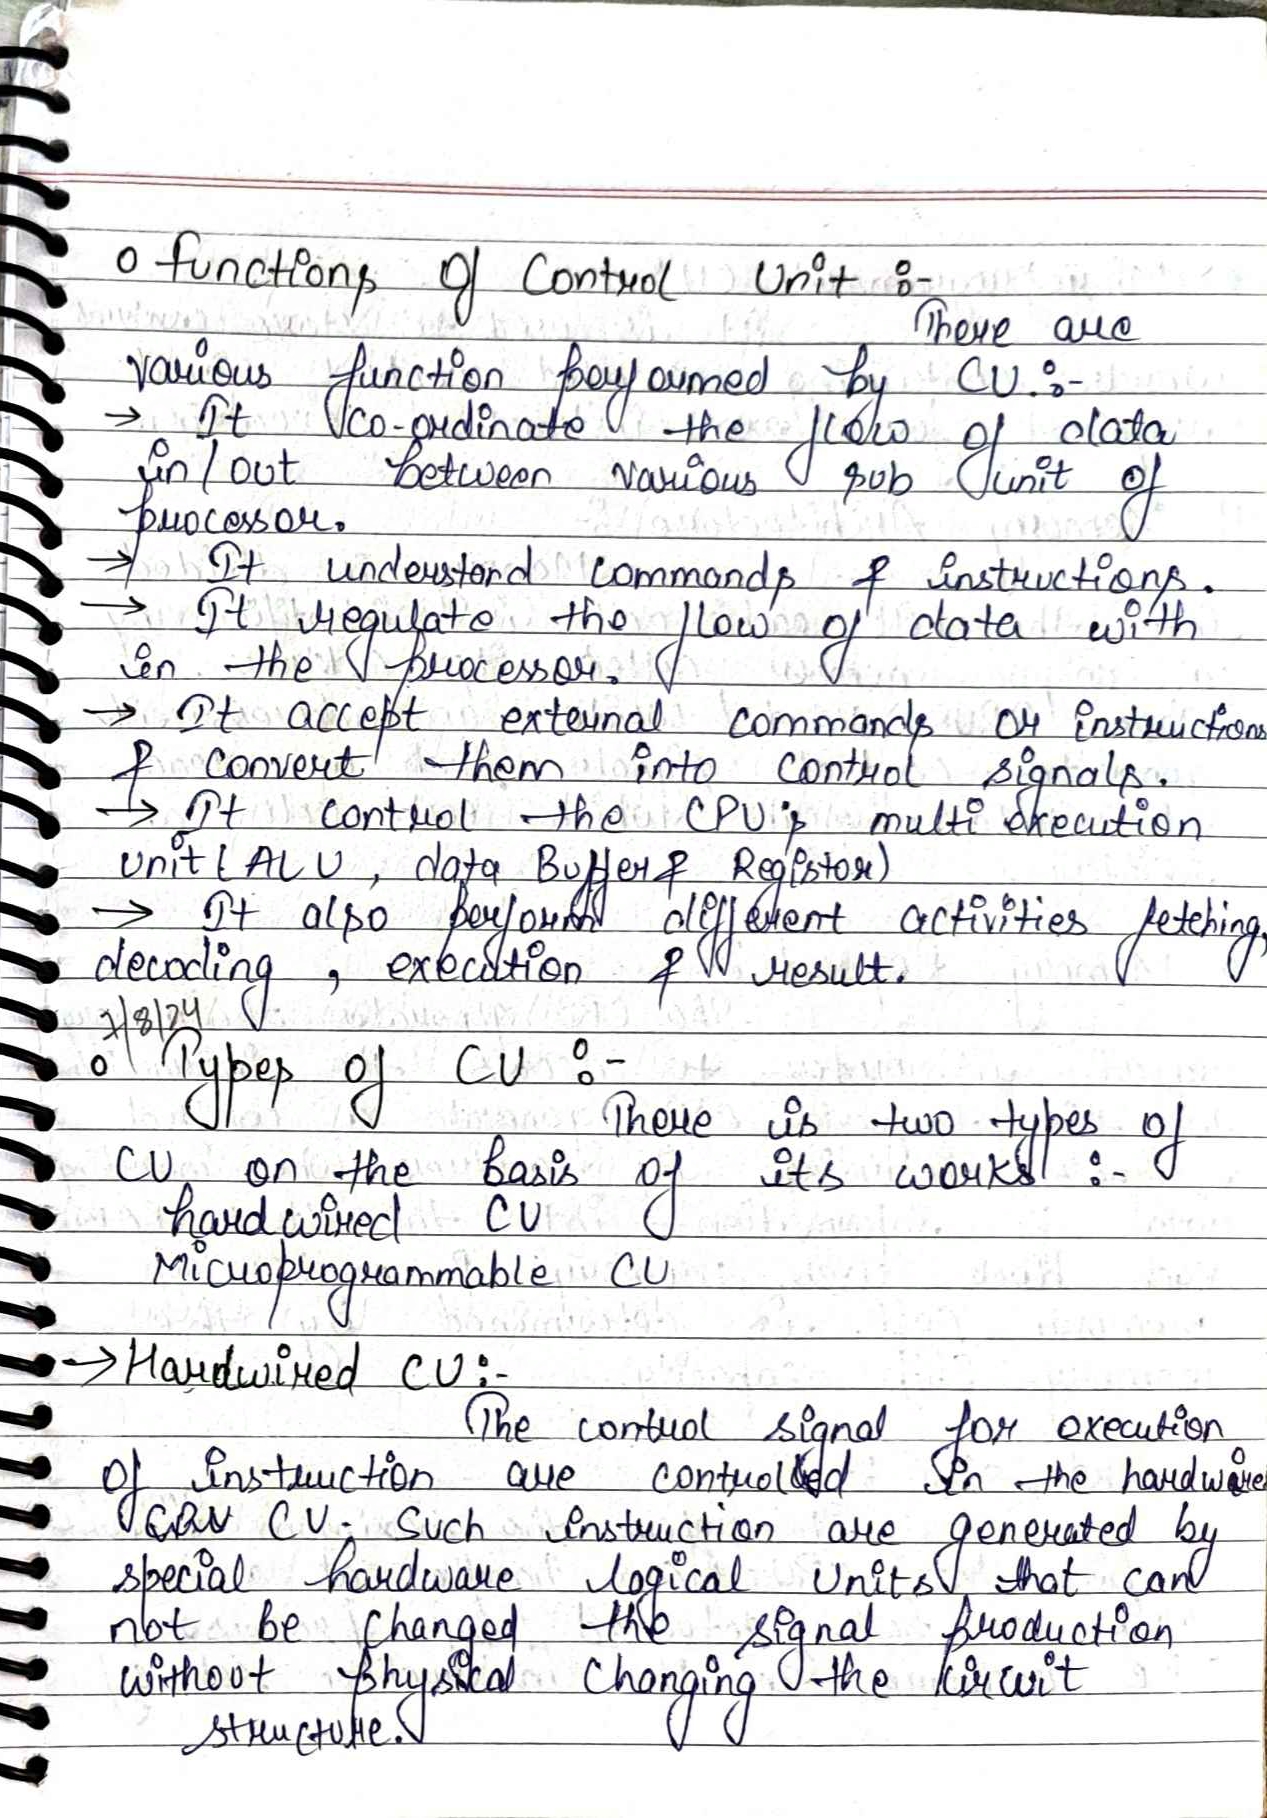 o functions of Control Unit :-
There are
various function performed by CU :-
→ It co-ordinate the flow of data
in/out between various sub unit of
processor.
→ It understand commands & instructions.
→ It regulate the flow of data with
in the processor.
→ It accept external commands or instructions
& convert them into control signals.
→ It control the CPU's multi execution
unit (ALU, data Buffer & Registor)
→ It also perform different activities fetching,
decoding, execution & result.
7/8/24
o Types of CU :-
There is two types of
CU on the basis of its works :-
hardwired CU
Microprogrammable CU
→ Hardwired CU :-
The control signal for execution
of instruction are controlled in the hardwire
CU. Such instruction are generated by
special hardware logical units that can
not be changed the signal production
without physical changing the kircuit
structure.